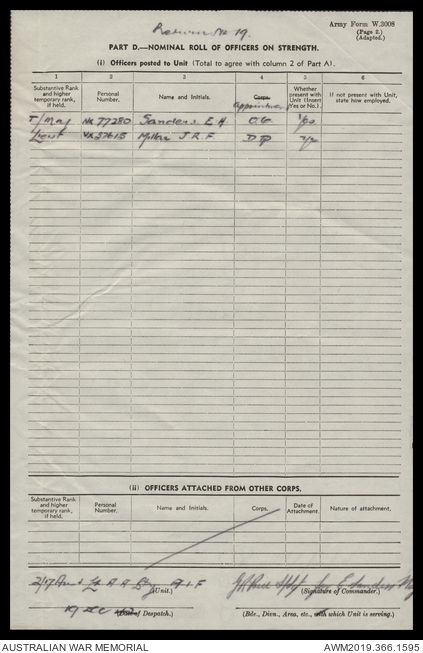 Return No 19.
Army Form W.3008
(Page 2.)
(Adapted.)
PART D.—NOMINAL ROLL OF OFFICERS ON STRENGTH.
(i) Officers posted to Unit (Total to agree with column 2 of Part A).
1 2 3 4 5 6
Substantive Rank and higher temporary rank, if held. Personal Number. Name and Initials. Corps. Appointment Whether present with Unit (Insert Yes or No). If not present with Unit, state how employed.
T/Maj NX77280 Sanders E A OC Yes
Lieut Miller J R F
(ii) OFFICERS ATTACHED FROM OTHER CORPS.
Substantive Rank and higher temporary rank, if held. Personal Number. Name and Initials. Corps. Date of Attachment. Nature of attachment.
2/17 Aust Lt A A Bty A I F
(Unit.) (Signature of Commander.)
19 (Date of Despatch.) (Bde., Divn., Area, etc., with which Unit is serving.)
AUSTRALIAN WAR MEMORIAL AWM2019.366.1595